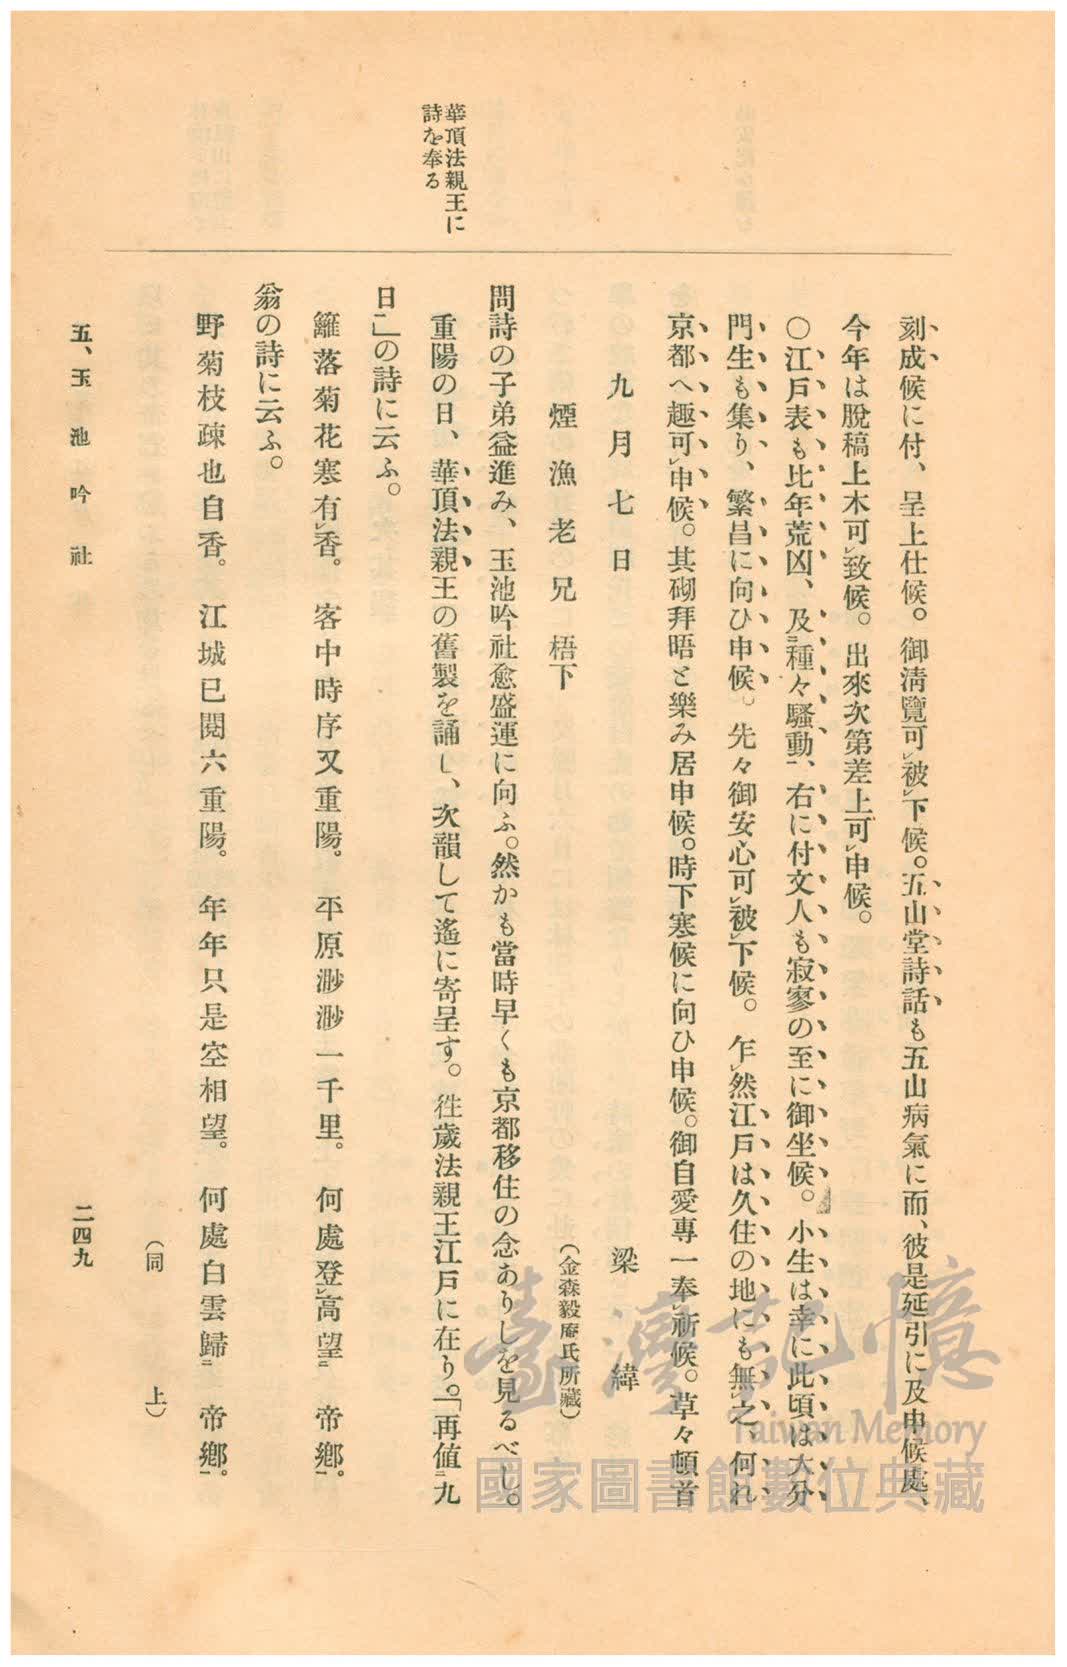 華頂法親王に
詩を奉る
刻成候に付、呈上仕候。御淸覽可㆑被㆑下候。五山堂詩話も五山病氣に而、彼是延引に及申候處、
今年は脫稿上木可㆑致候。出來次第差上可㆑申候。
〇江戶表も比年荒凶、及㆓種々騷動㆒、右に付文人も寂寥の至に御坐候。小生は幸に此頃は大分
門生も集り、繁昌に向ひ申候。先々御安心可㆑被㆑下候。乍㆑然江戶は久住の地にも無㆑之、何れ
京都へ趣可㆑申候。其砌拜晤と樂み居申候。時下寒候に向ひ申候。御自愛專一奉㆑祈候。草々頓首
九月七日　梁緯
煙漁老兄梧下　（金森毅庵氏所藏）
問詩の子弟益進み、玉池吟社愈盛運に向ふ。然かも當時早くも京都移住の念ありしを見るべし。
重陽の日、華頂法親王の舊製を誦し、次韻して遙に寄呈す。徃歲法親王江戶に在り。「再値㆓九
日㆒」の詩に云ふ。
籬落菊花寒有㆑香。客中時序又重陽。平原渺渺一千里。何處登㆑高望㆓帝鄕㆒。
翁の詩に云ふ。
野菊枝疎也自香。江城已閱六重陽。年年只是空相望。何處白雲歸㆓帝鄕㆒。
（同　上）
五、玉池吟社
二四九
臺灣記憶
Taiwan Memory
國家圖書館數位典藏